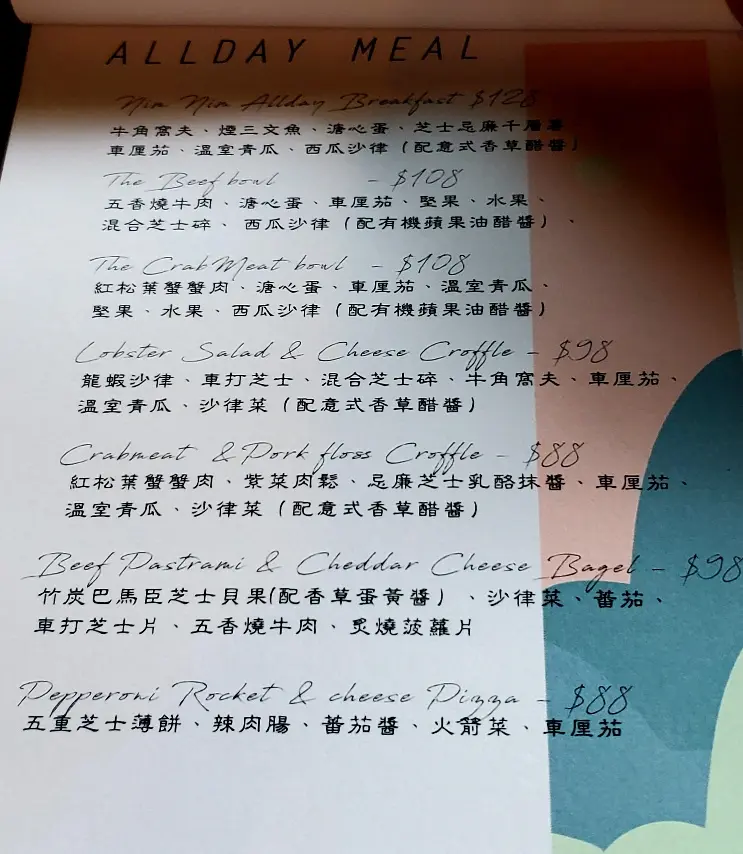 ALLDAY MEAL
Nim Nim Allday Breakfast $128
牛角窩夫、煙三文魚、溏心蛋、芝士忌廉千層薯
車厘茄、溫室青瓜、西瓜沙律（配意式香草醋醬）
The Beef bowl - $108
五香燒牛肉、溏心蛋、車厘茄、堅果、水果、
混合芝士碎、西瓜沙律（配有機蘋果油醋醬）、
The Crab Meat bowl - $108
紅松葉蟹蟹肉、溏心蛋、車厘茄、溫室青瓜、
堅果、水果、西瓜沙律（配有機蘋果油醋醬）
Lobster Salad & Cheese Croffle - $98
龍蝦沙律、車打芝士、混合芝士碎、牛角窩夫、車厘茄、
溫室青瓜、沙律菜（配意式香草醋醬）
Crabmeat & Pork floss Croffle - $88
紅松葉蟹蟹肉、紫菜肉鬆、忌廉芝士乳酪抹醬、車厘茄、
溫室青瓜、沙律菜（配意式香草醋醬）
Beef Pastrami & Cheddar Cheese Bagel - $98
竹炭巴馬臣芝士貝果(配香草蛋黃醬）、沙律菜、蕃茄、
車打芝士片、五香燒牛肉、炙燒菠蘿片
Pepperoni Rocket & cheese Pizza - $88
五重芝士薄餅、辣肉腸、蕃茄醬、火箭菜、車厘茄